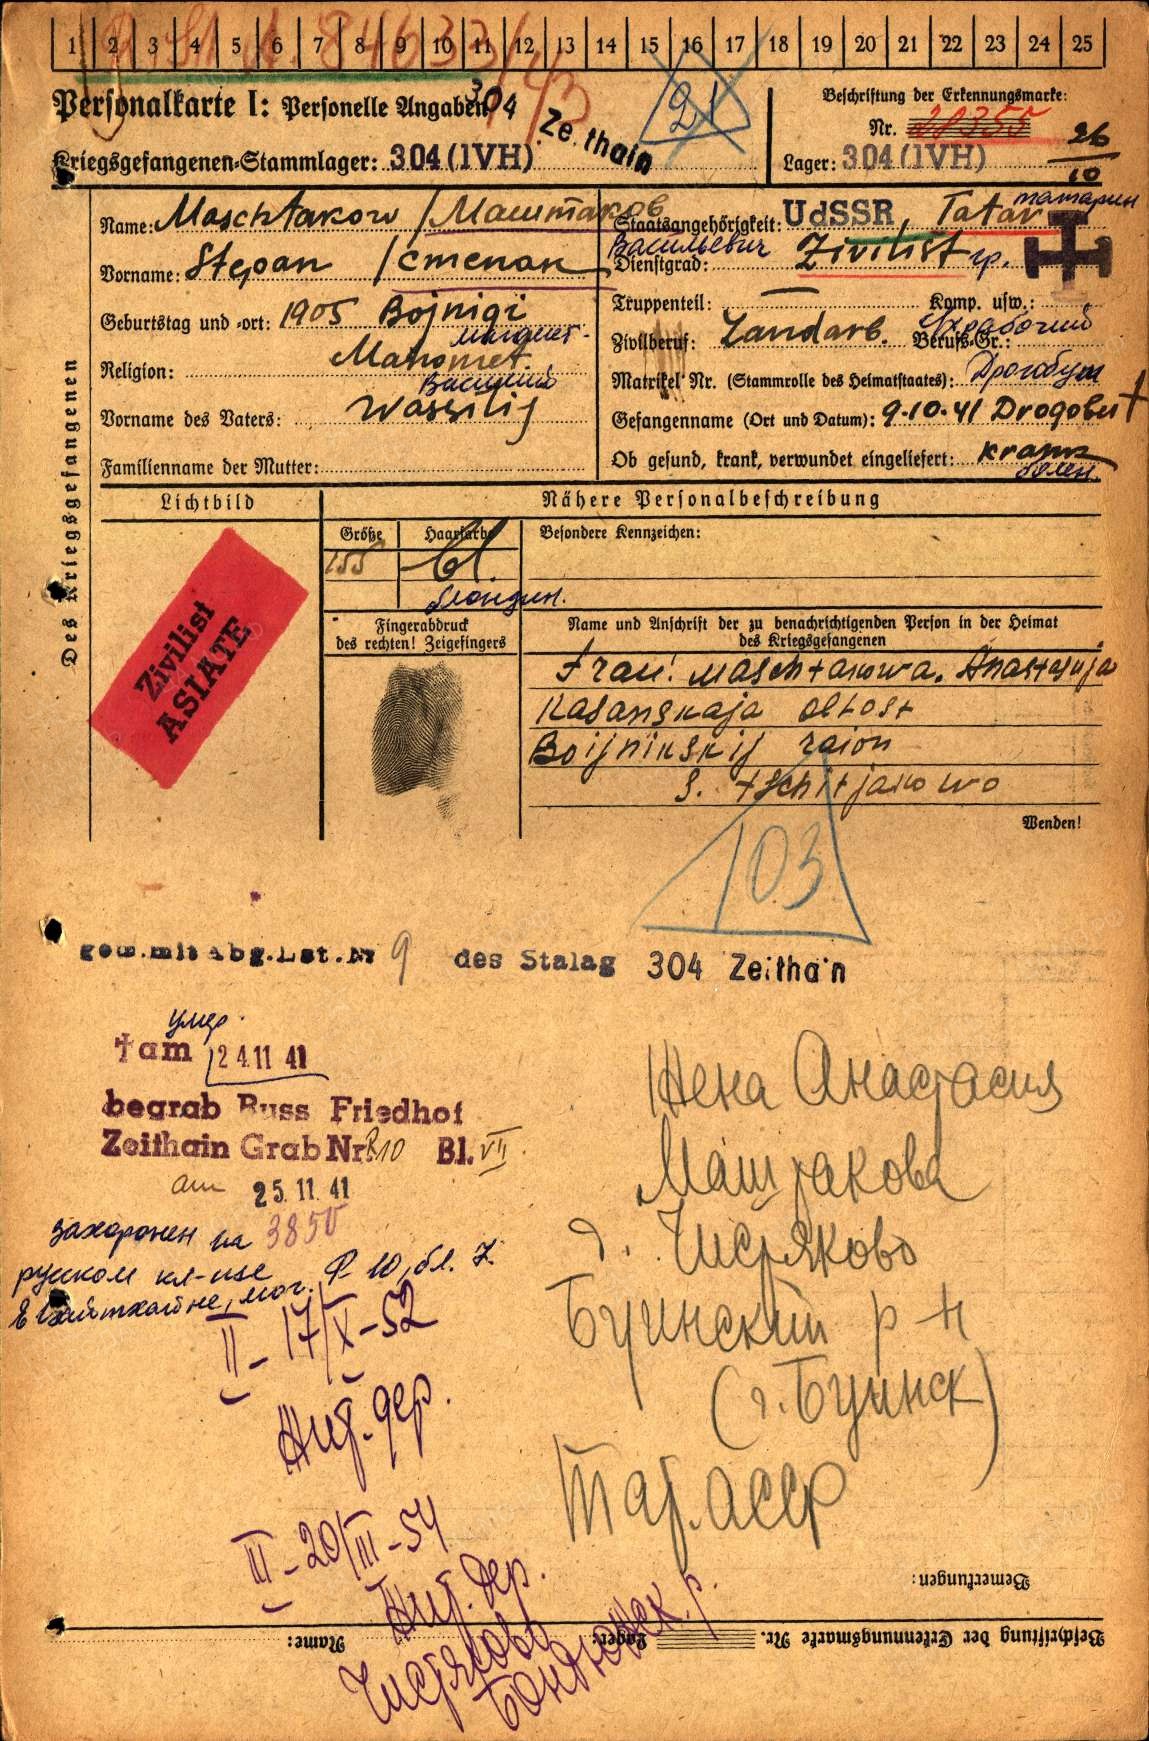 1 2 3 4 5 6 7 8 9 10 11 12 13 14 15 16 17 18 19 20 21 22 23 24 25
Personalkarte I: Personelle Angaben
304
Zeithain
21
Beschriftung der Erkennungsmarke:
Nr. 28355
26
10
Kriegsgefangenen-Stammlager: 304 (IVH)
Lager: 304 (IVH)
Des Kriegsgefangenen
Name: Maschtakow / Маштаков
Staatsangehörigkeit: UdSSR, Tatar татарин
Васильевич
Vorname: Stepan / Степан
Dienstgrad: Zivilist гр.
Geburtstag und -ort: 1905 Bojnigi
Truppenteil: Komp. usw.:
Zivilberuf: Landarb. Berufs-Gr.:
рабочий
магомет.
Religion: Mahomet.
Matrikel Nr. (Stammrolle des Heimatstaates):
Дрогобуж
Василий
Vorname des Vaters: Wassilij
Gefangenname (Ort und Datum): 9.10.41 Drogobert
Familienname der Mutter:
Ob gesund, krank, verwundet eingeliefert: krank
болен.
Lichtbild
Nähere Personalbeschreibung
Größe
Haarfarbe
Besondere Kennzeichen:
155
bl.
блондин.
Zivilist
ASIATE
Fingerabdruck
des rechten! Zeigefingers
Name und Anschrift der zu benachrichtigenden Person in der Heimat
des Kriegsgefangenen
Frau: Maschtakowa, Anastasija
Kasanskaja oblost
Boijnikskij raion
S. tschitjakowo
Wenden!
103
gem. mit Abg. Lst. Nr 9 des Stalag 304 Zeithain
умер.
† am 24.11 41
begrab Russ Friedhof
Zeithain Grab Nr. 10 Bl. VII
am 25.11.41
3850
захоронен на
русском кл-ще
в Цайтхайне, мог. 10, бл. 7.
II - 17/X-52
Инф. дер.
III - 20/III-54
Инф. дер.
Чистяково
Бондюжск. р.
Жена Анастасия
Маштакова
д. Чистяково
Буинский р-н
(г. Буинск)
Тат. АССР
Bemerkungen:
Beschriftung der Erkennungsmarke Nr.
Lager:
Name: